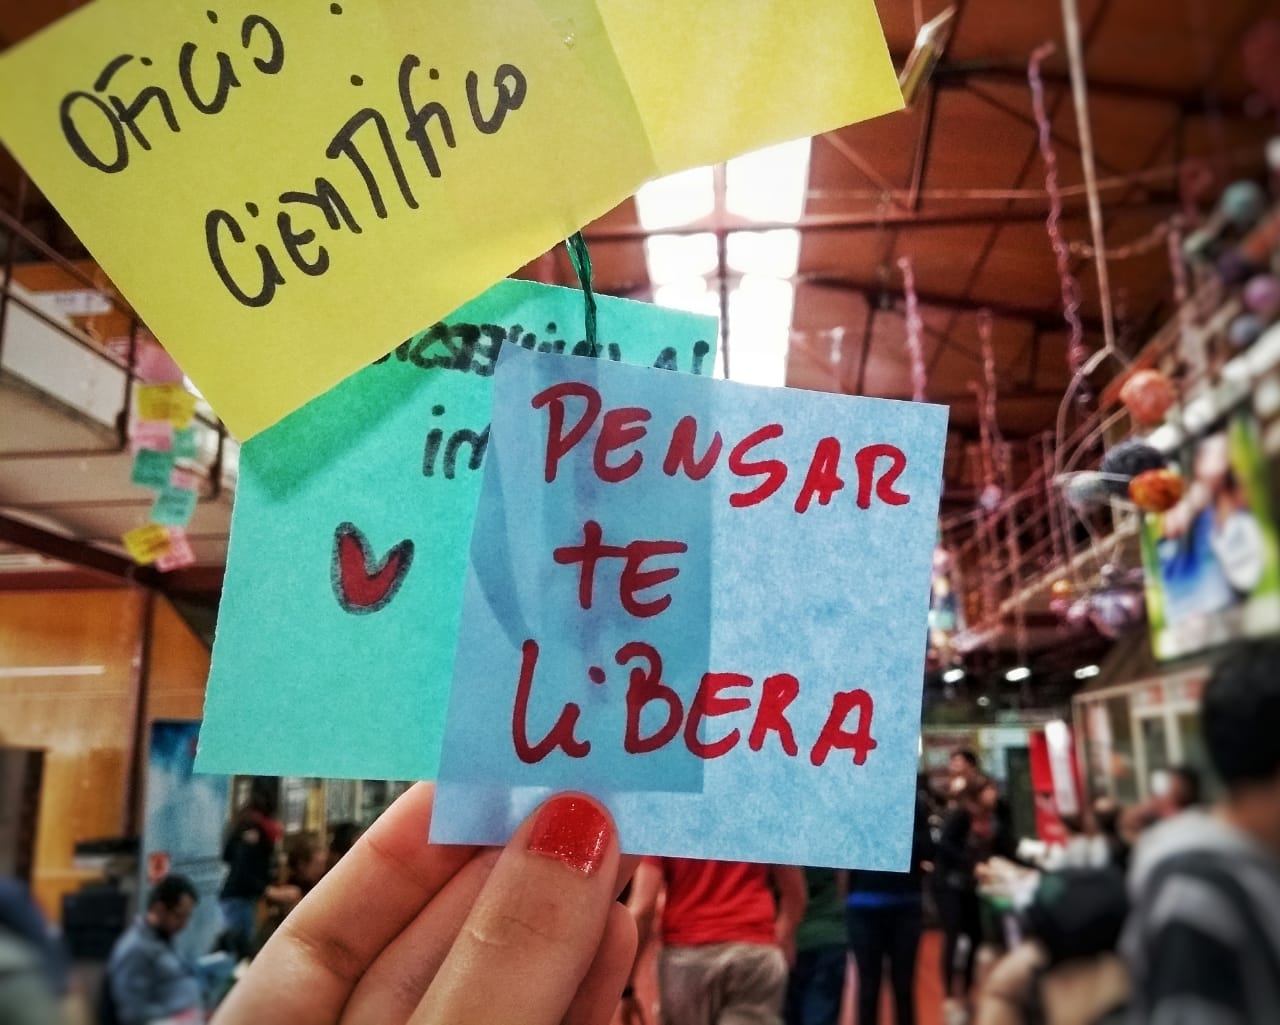 Oficio :
Científico
im
PENSAR
TE
LiBERA